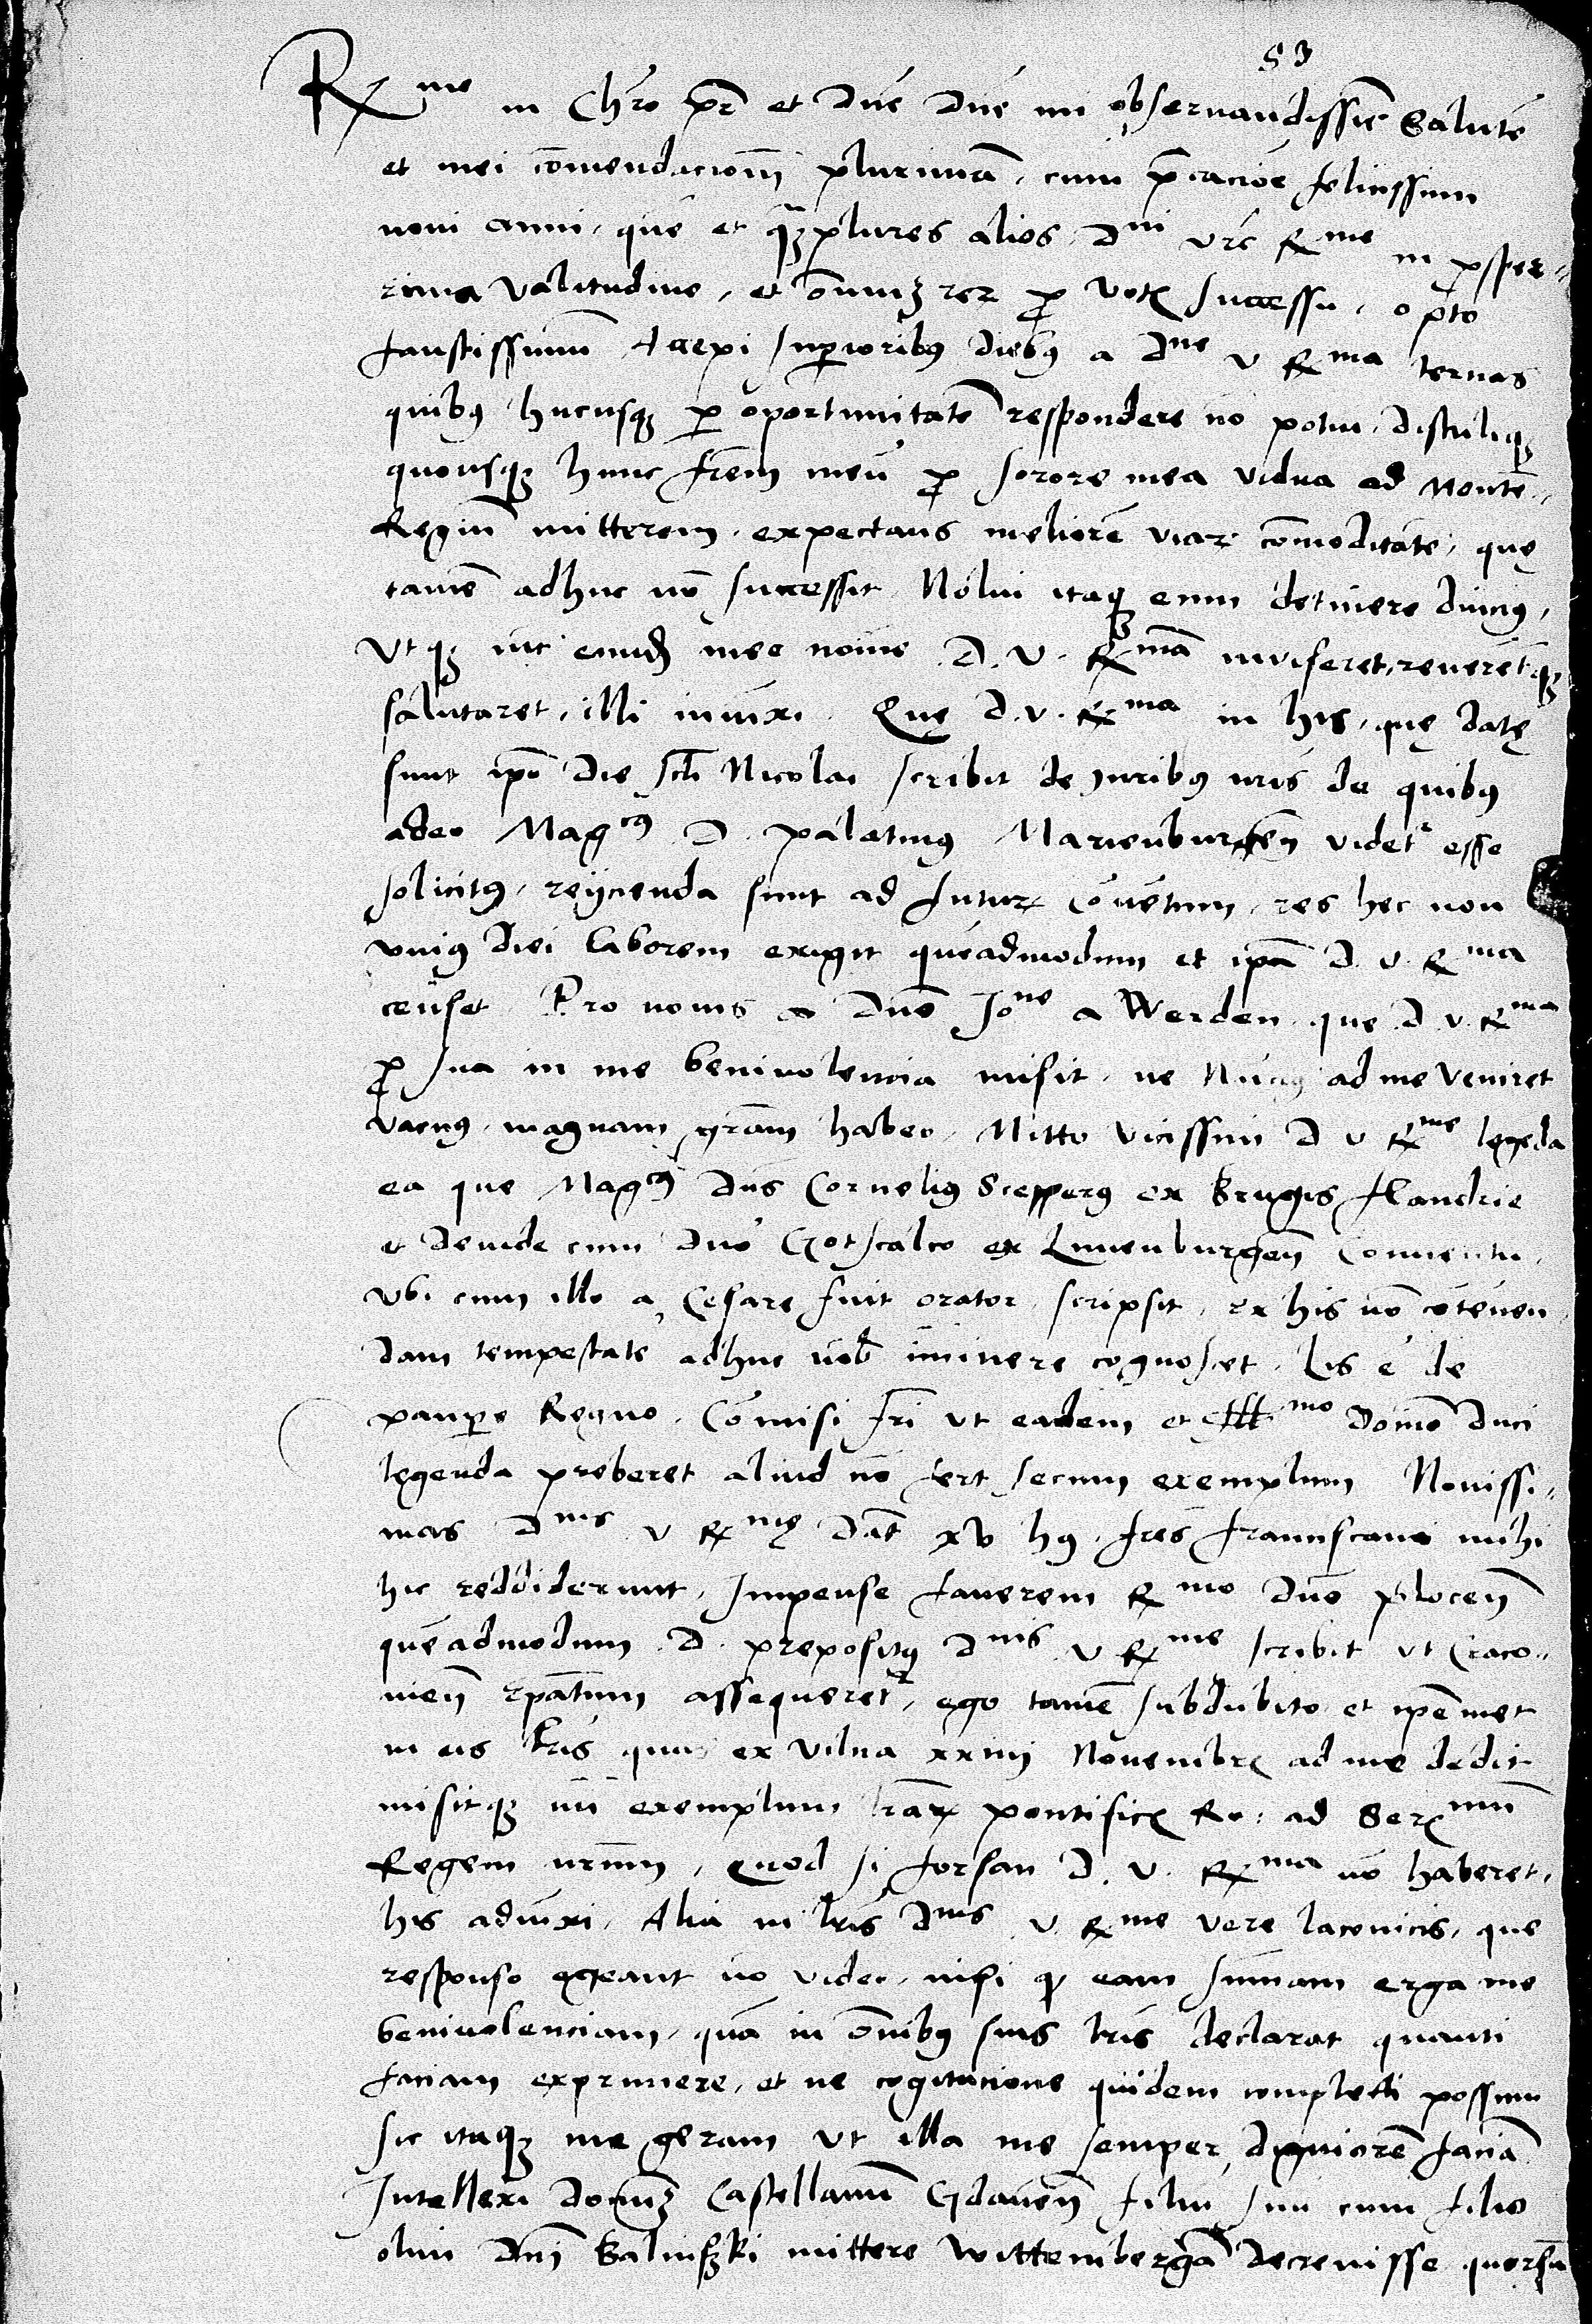 53
R(me) in Chro pr et Dne Dne mi observandissime Salute
et mei comendacionem plurimam, cum precacione felicissimi
novi anni, quem et quamplures alios D(ni) Vre R(me) in prosper-
rima valitudine, et omnium rerum pro votis successu, opto
faustissimum. Accepi superioribus diebus a D(ne) V R(ma) ternas
quibus hucusque per oportunitatem respondere non potui, distulique
quousque hunc fratrem meum pro sorore mea vidua ad Montem
Regium mitterem, expectans meliorem viarum comoditatem, que
tamen adhuc non successit. Nolui itaque eum detinere diucius,
Utque eundem meo nomine D. V. R(mam) inviseret, reverenterque
salutaret, illi iniunxi. Que D. V. R(ma) in his, que date
sunt ipso die scti Nicolai scribit de iuribus nris de quibus
adeo Mag(cus) D. palatinus Marienburgen videtur esse
solicitus, reijcienda sunt ad futurum conventum, res hec non
unius diei laborem exigit quemadmodum et ipsa D. V. R(ma)
censet. Pro novis a Dno Jo(ne) a Werden, que D. V. R(ma)
pro sua in me benivolencia misit, ne nuncius ad me veniret
vacuus, magnam gratiam habeo. Mitto vicissim D V R(me) legenda
ea que Mag(cus) Dns Cornelius Scepperus ex Brugis Flandrie
et deinde cum Dno Gotscalco ex Lunenburgen Conventu,
ubi cum illo a Cesare fuit orator, scripsit, ex his non contemnen
dam tempestatem adhuc nobis iminere cognoscet. Lis e de
paupere Regno. Comisi fri ut eadem et Ill(mo) domino duci
legenda preberet aliud non fert secum exemplum. Novissi-
mas D(nis) V R(me) dat xv hus, fres franciscani mihi
hic reddiderunt. Impense faverem R(mo) Dno Plocen
quemadmodum D. prepositus D(nis) V R(me) scribit ut Craco-
vien Epatum assequeretur, ego tamen subdubito et ipsemet
in eis lris quas ex Vilna xxiiij Novembris ad me dedit
misitque mihi exemplum lrarum pontificis Ro: ad Ser(mum)
Regem nrum, quod si forsan D. V. R(ma) non haberet,
his adiunxi. Alia in lris D(nis) V. R(me) vere laconicis, que
responso egeant non video, nisi quod eam summam erga me
benivolenciam, quam in omnibus suis lris declarat quanti
faciam exprimere, et ne cogitacione quidem complecti possum
sic itaque me geram ut illa me semper digniorem faciam
Intellexi dominum Castellanum Gdanen filium suum cum filio
olim Dni Balinszki mittere Wittembergam decrevisse quorsum